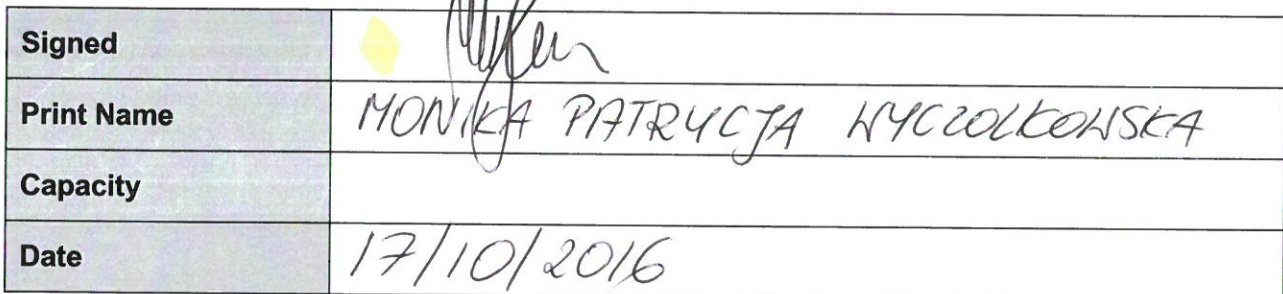 Signed
Print Name MONIKA PATRYCJA WYCZOLKOWSKA
Capacity
Date 17/10/2016